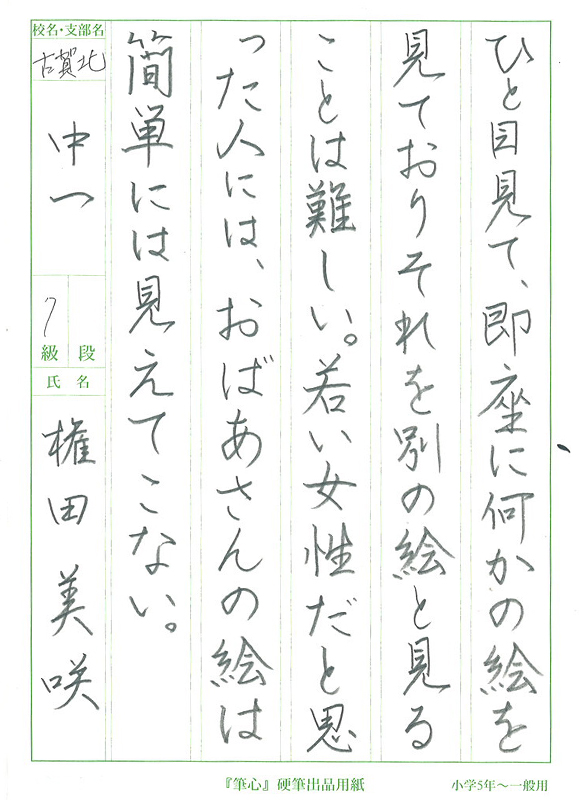 ひと目見て、即座に何かの絵を
見ておりそれを別の絵と見る
ことは難しい。若い女性だと思
った人には、おばあさんの絵は
簡単には見えてこない。
校名・支部名
古賀北
中一
7
級 段
氏 名
権田美咲
『筆心』硬筆出品用紙
小学5年～一般用